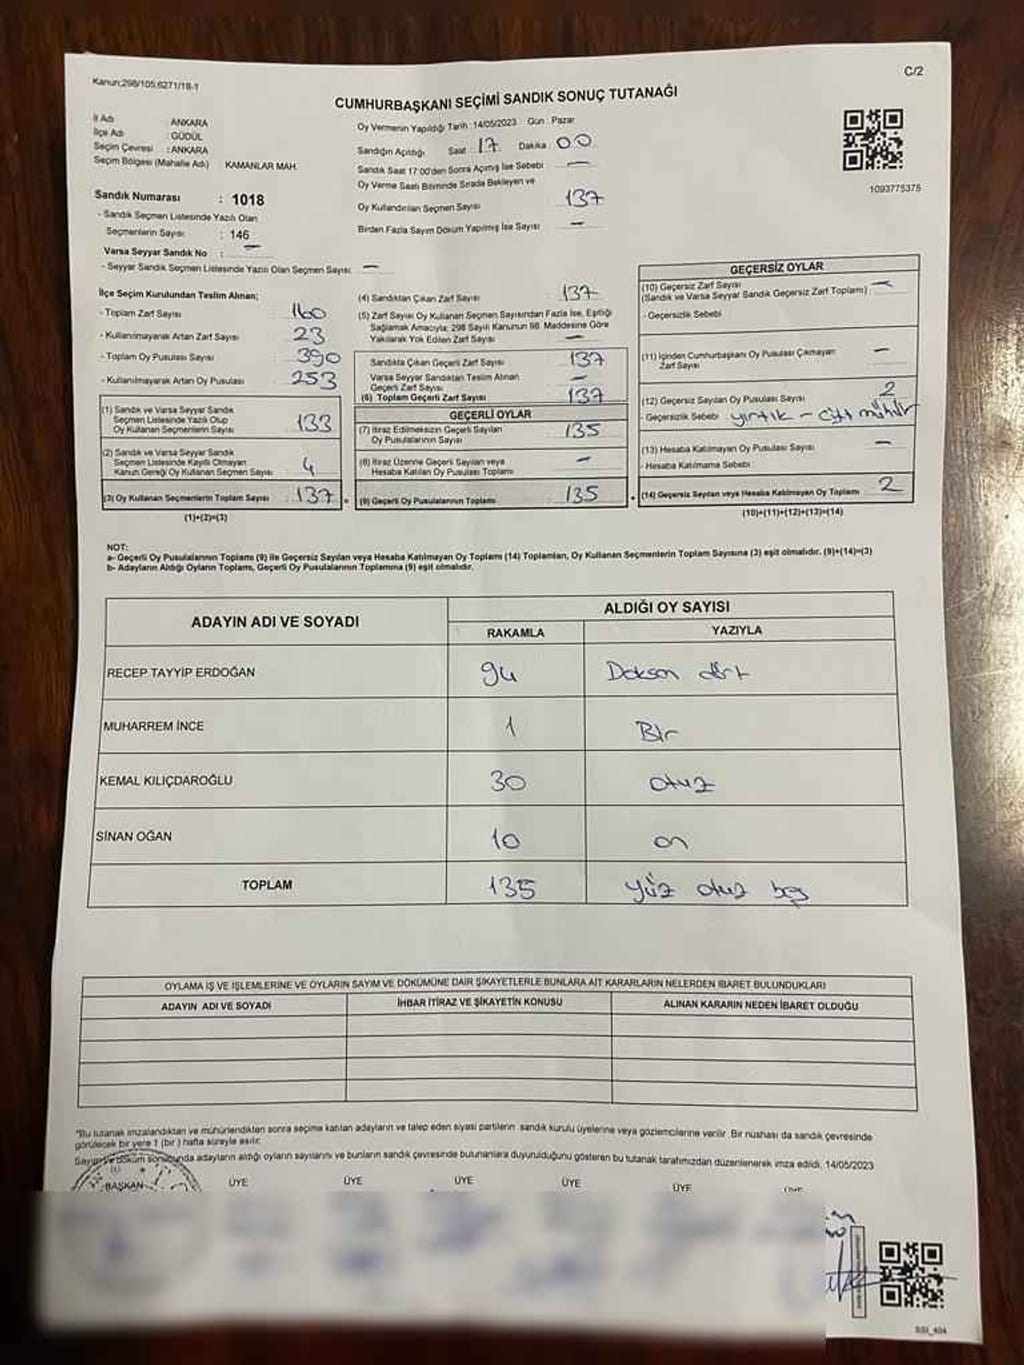 Kanun;298/105;6271/18-1
C/2
CUMHURBAŞKANI SEÇİMİ SANDIK SONUÇ TUTANAĞI
İl Adı : ANKARA
İlçe Adı : GÜDÜL
Seçim Çevresi : ANKARA
Seçim Bölgesi (Mahalle Adı) KAMANLAR MAH.
Sandık Numarası : 1018
- Sandık Seçmen Listesinde Yazılı Olan
Seçmenlerin Sayısı : 146
Varsa Seyyar Sandık No : —
- Seyyar Sandık Seçmen Listesinde Yazılı Olan Seçmen Sayısı: —
Oy Vermenin Yapıldığı Tarih : 14/05/2023 Gün : Pazar
Sandığın Açıldığı Saat : 17 Dakika : 00
Sandık Saat 17:00'den Sonra Açımış İse Sebebi —
Oy Verme Saati Bitiminde Sırada Bekleyen ve
Oy Kullandırılan Seçmen Sayısı 137
Birden Fazla Sayım Döküm Yapılmış İse Sayısı —
1093775375
İlçe Seçim Kurulundan Teslim Alınan;
- Toplam Zarf Sayısı 160
- Kullanılmayarak Artan Zarf Sayısı 23
- Toplam Oy Pusulası Sayısı 390
- Kullanılmayarak Artan Oy Pusulası 253
(1) Sandık ve Varsa Seyyar Sandık
Seçmen Listesinde Yazılı Olup
Oy Kullanan Seçmenlerin Sayısı 133
(2) Sandık ve Varsa Seyyar Sandık
Seçmen Listesinde Kayıtlı Olmayan
Kanun Gereği Oy Kullanan Seçmen Sayısı 4
(3) Oy Kullanan Seçmenlerin Toplam Sayısı 137
(1)+(2)=(3)
(4) Sandıktan Çıkan Zarf Sayısı 137
(5) Zarf Sayısı Oy Kullanan Seçmen Sayısından Fazla İse, Eşitliği
Sağlamak Amacıyla; 298 Sayılı Kanunun 98. Maddesine Göre
Yakılarak Yok Edilen Zarf Sayısı —
Sandıkta Çıkan Geçerli Zarf Sayısı 137
Varsa Seyyar Sandıktan Teslim Alınan
Geçerli Zarf Sayısı —
(6) Toplam Geçerli Zarf Sayısı 137
GEÇERLİ OYLAR
(7) İtiraz Edilmeksizin Geçerli Sayılan
Oy Pusulalarının Sayısı 135
(8) İtiraz Üzerine Geçerli Sayılan veya
Hesaba Katılan Oy Pusulaları Toplamı —
(9) Geçerli Oy Pusulalarının Toplamı 135
GEÇERSİZ OYLAR
(10) Geçersiz Zarf Sayısı —
(Sandık ve Varsa Seyyar Sandık Geçersiz Zarf Toplamı)
- Geçersizlik Sebebi
(11) İçinden Cumhurbaşkanı Oy Pusulası Çıkmayan
Zarf Sayısı —
(12) Geçersiz Sayılan Oy Pusulası Sayısı 2
- Geçersizlik Sebebi yırtık - çift mühür
(13) Hesaba Katılmayan Oy Pusulası Sayısı —
- Hesaba Katılmama Sebebi
(14) Geçersiz Sayılan veya Hesaba Katılmayan Oy Toplamı 2
(10)+(11)+(12)+(13)=(14)
NOT:
a- Geçerli Oy Pusulalarının Toplamı (9) ile Geçersiz Sayılan veya Hesaba Katılmayan Oy Toplamı (14) Toplamları, Oy Kullanan Seçmenlerin Toplam Sayısına (3) eşit olmalıdır. (9)+(14)=(3)
b- Adayların Aldığı Oyların Toplamı, Geçerli Oy Pusulalarının Toplamına (9) eşit olmalıdır.
ADAYIN ADI VE SOYADI
ALDIĞI OY SAYISI
RAKAMLA YAZIYLA
RECEP TAYYİP ERDOĞAN 94 Doksan dört
MUHARREM İNCE 1 Bir
KEMAL KILIÇDAROĞLU 30 otuz
SİNAN OĞAN 10 on
TOPLAM 135 yüz otuz beş
OYLAMA İŞ VE İŞLEMLERİNE VE OYLARIN SAYIM VE DÖKÜMÜNE DAİR ŞİKAYETLERLE BUNLARA AİT KARARLARIN NELERDEN İBARET BULUNDUKLARI
ADAYIN ADI VE SOYADI İHBAR İTİRAZ VE ŞİKAYETİN KONUSU ALINAN KARARIN NEDEN İBARET OLDUĞU
*Bu tutanak imzalandıktan ve mühürlendikten sonra seçime katılan adayların ve talep eden siyasi partilerin sandık kurulu üyelerine veya gözlemcilerine verilir. Bir nüshası da sandık çevresinde
görülecek bir yere 1 (bir) hafta süreyle asılır.
Sayım ve döküm sonucunda adayların aldığı oyların sayılarını ve bunların sandık çevresinde bulunanlara duyurulduğunu gösteren bu tutanak tarafımızdan düzenlenerek imza edildi. 14/05/2023
BAŞKAN ÜYE ÜYE ÜYE ÜYE ÜYE ÜYE